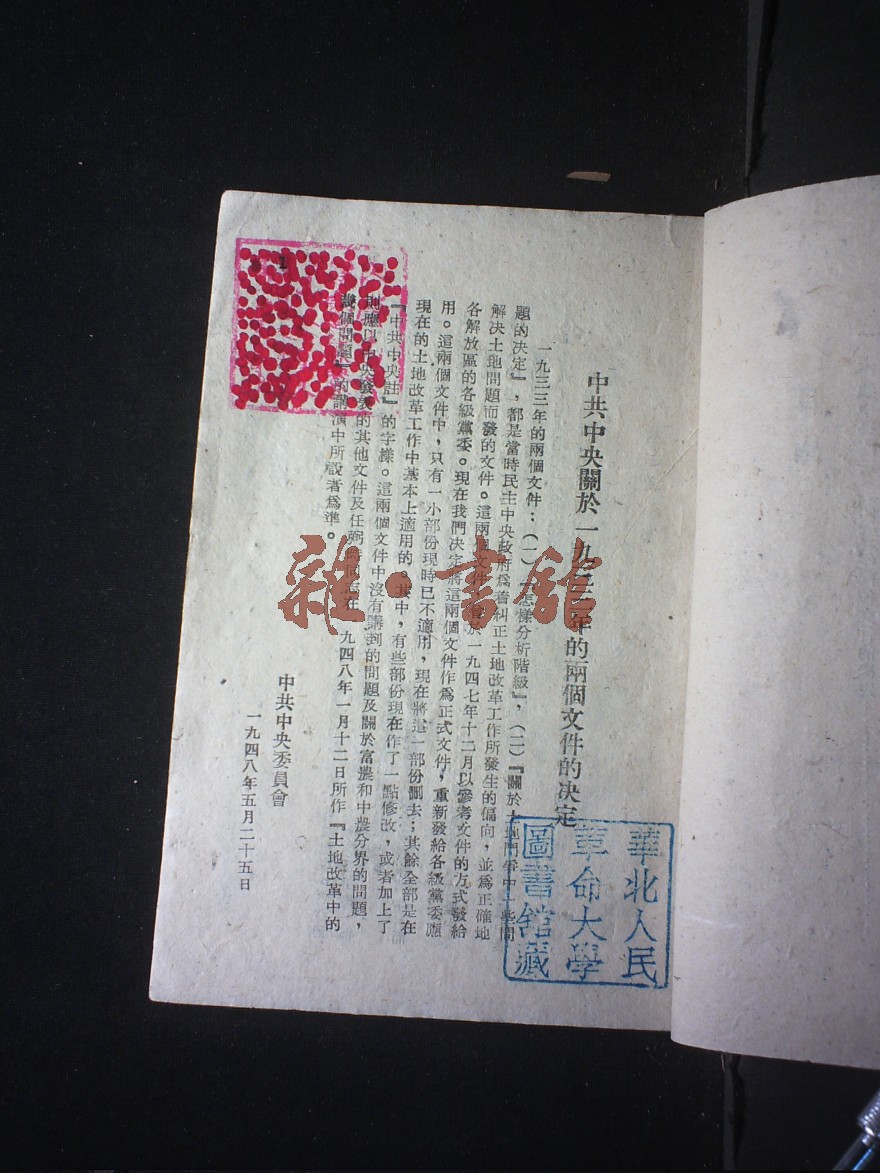 中共中央關於一九三三年的兩個文件的決定
一九三三年的兩個文件：（一）『怎樣分析階級』，（二）『關於土地鬥爭中一些問
題的決定』，都是當時民主中央政府爲着糾正土地改革工作所發生的偏向，並爲正確地
解决土地問題而發的文件。這兩個文件，曾於一九四七年十二月以參考文件的方式發給
各解放區的各級黨委。現在我們決定將這兩個文件作爲正式文件，重新發給各級黨委應
用。這兩個文件中，只有一小部份現時已不適用，現在將這一部份删去；其餘全部是在
現在的土地改革工作中基本上適用的。其中，有些部份現在作了一點修改，或者加上了
『中共中央註』的字樣。這兩個文件中沒有講到的問題及關於富農和中農分界的問題，
則應以中央發表的其他文件及任弼時同志在一九四八年一月十二日所作『土地改革中的
幾個問題』的講演中所說者爲準。
中共中央委員會
一九四八年五月二十五日
華北人民
革命大學
圖書館藏
雜·書館